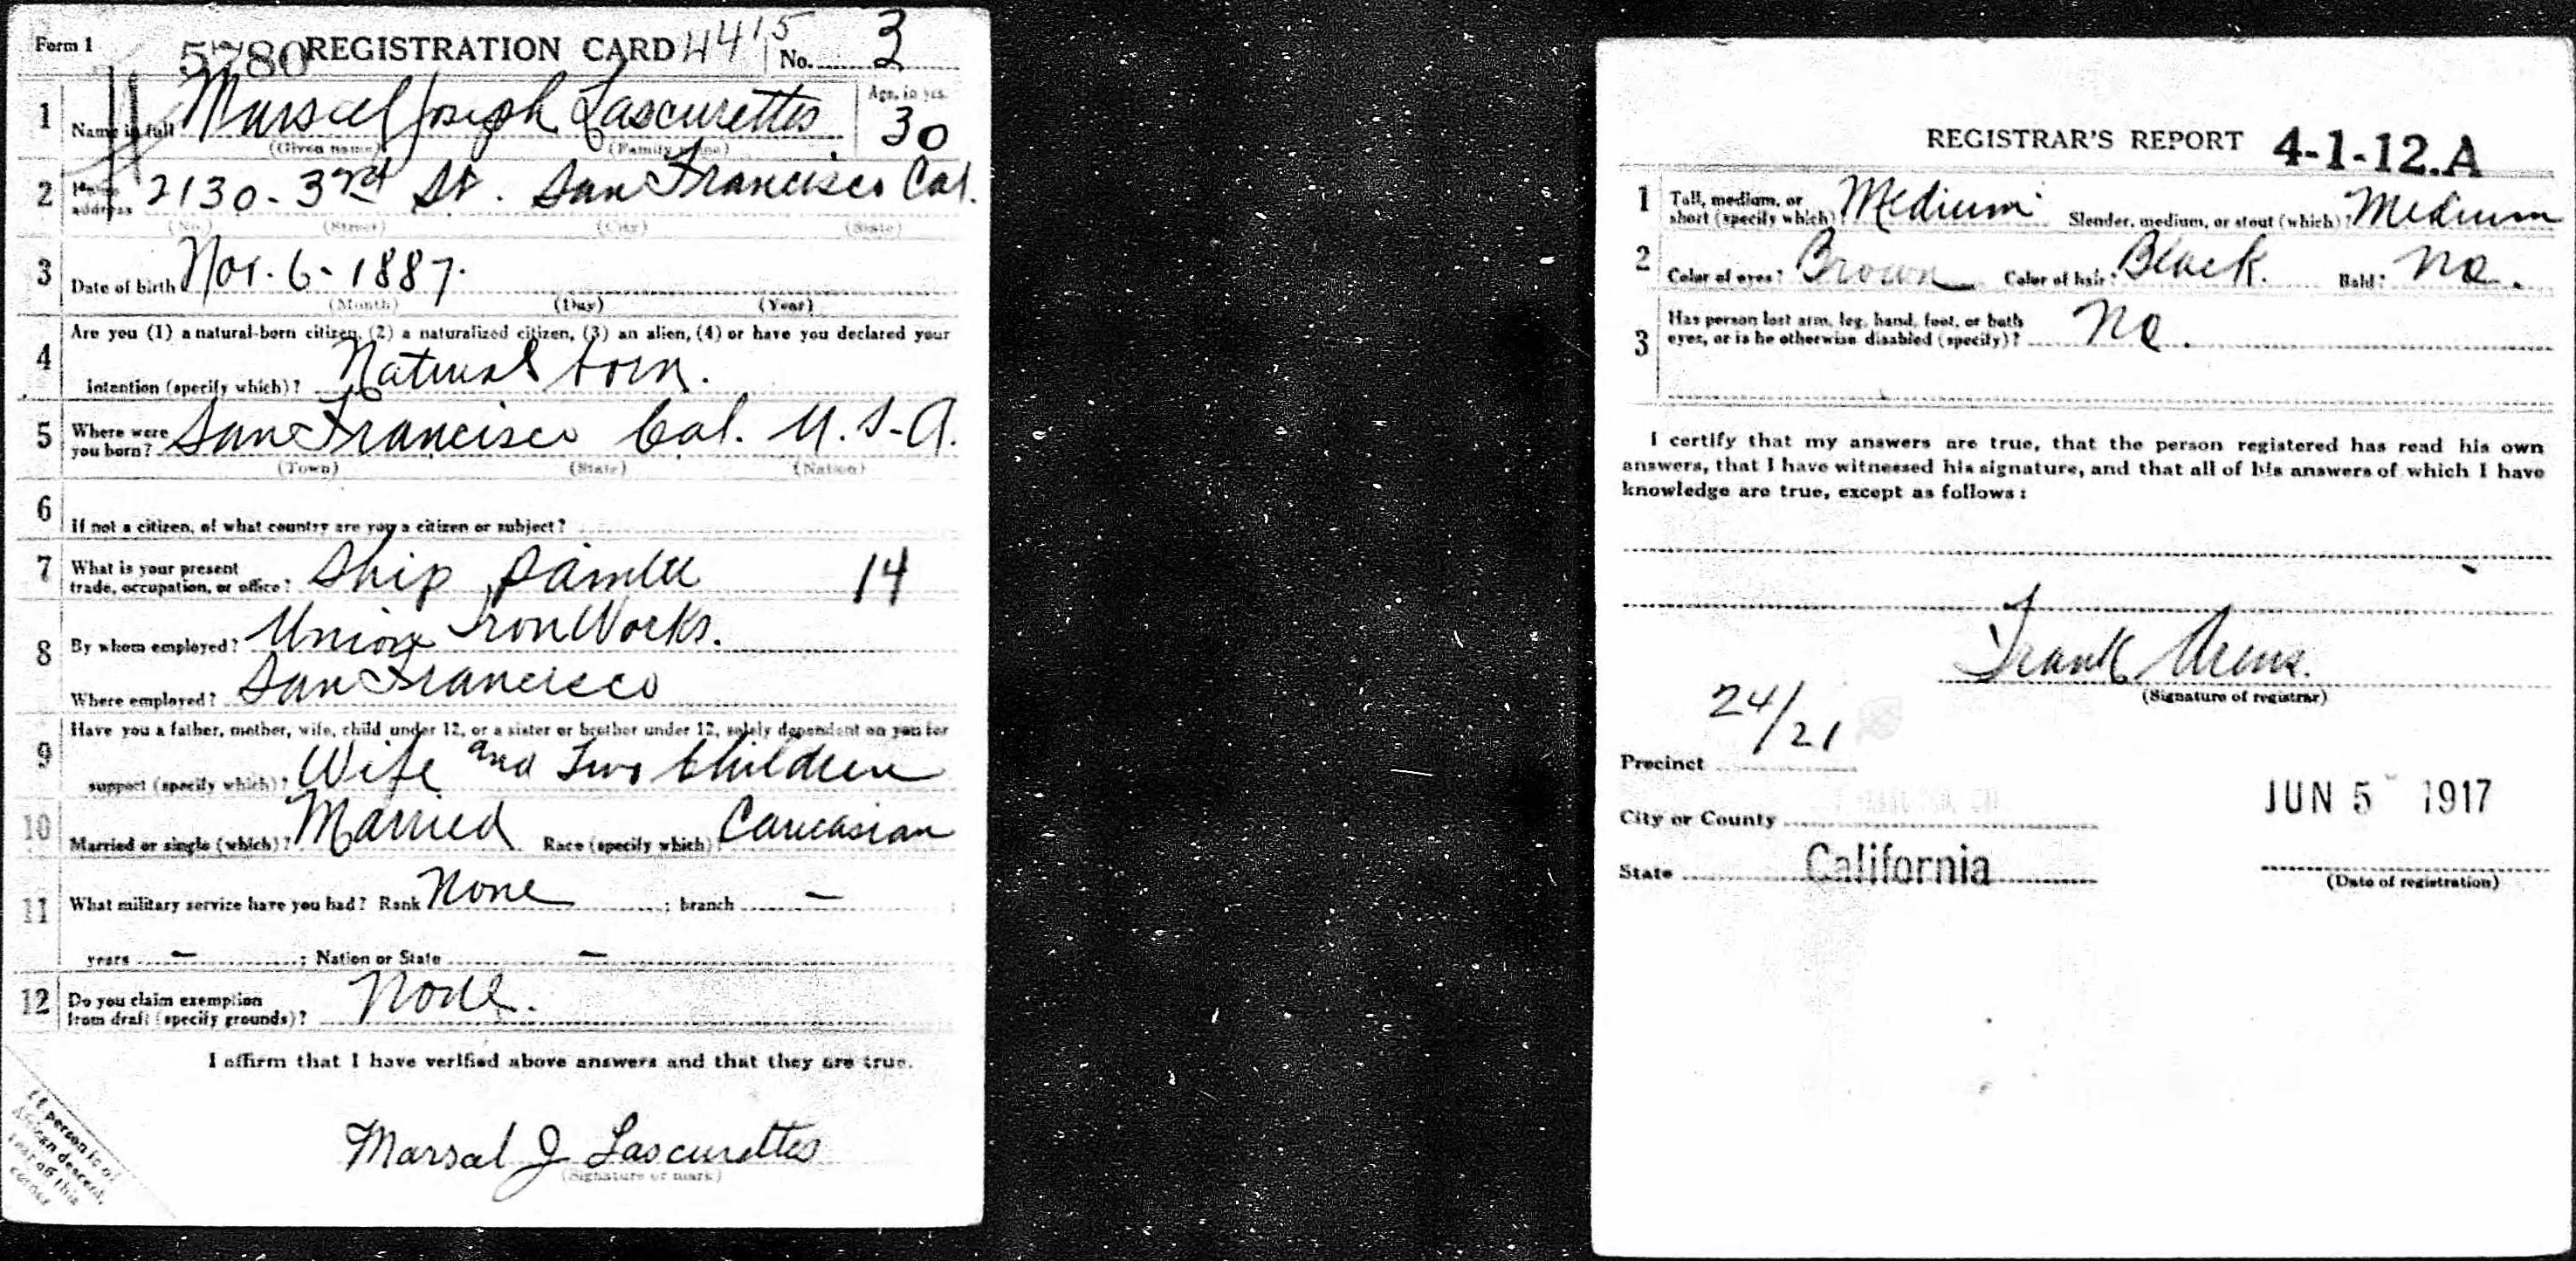 Form 1 5780 REGISTRATION CARD 4415 No. 3
1 Name in full Marsael Joseph Lascurettes Age, in yrs. 30
(Given name) (Family name)
2 Home address 2130 - 3rd St. San Francisco Cal.
(No.) (Street) (City) (State)
3 Date of birth Nov. 6 - 1887.
(Month) (Day) (Year)
Are you (1) a natural-born citizen, (2) a naturalized citizen, (3) an alien, (4) or have you declared your
4 intention (specify which)? Natural born.
5 Where were you born? San Francisco Cal. U.S.A.
(Town) (State) (Nation)
6 If not a citizen, of what country are you a citizen or subject?
7 What is your present
trade, occupation, or office? Ship painter 14
8 By whom employed? Union Iron Works.
Where employed? San Francisco
Have you a father, mother, wife, child under 12, or a sister or brother under 12, solely dependent on you for
9 support (specify which)? Wife and Two Children
10 Married or single (which)? Married Race (specify which)? Caucasian
11 What military service have you had? Rank None ; branch —
years — ; Nation or State —
12 Do you claim exemption
from draft (specify grounds)? None.
I affirm that I have verified above answers and that they are true.
Marsal J Lascurettes
(Signature or mark)
If person is of
African descent,
tear off this
corner
REGISTRAR'S REPORT 4-1-12.A
1 Tall, medium, or
short (specify which)? Medium Slender, medium, or stout (which)? Medium
2 Color of eyes? Brown Color of hair? Black. Bald? No.
3 Has person lost arm, leg, hand, foot, or both
eyes, or is he otherwise disabled (specify)? No.
I certify that my answers are true, that the person registered has read his own
answers, that I have witnessed his signature, and that all of his answers of which I have
knowledge are true, except as follows:
Frank Arens.
(Signature of registrar)
Precinct 24/21
City or County
JUN 5 1917
State California
(Date of registration)